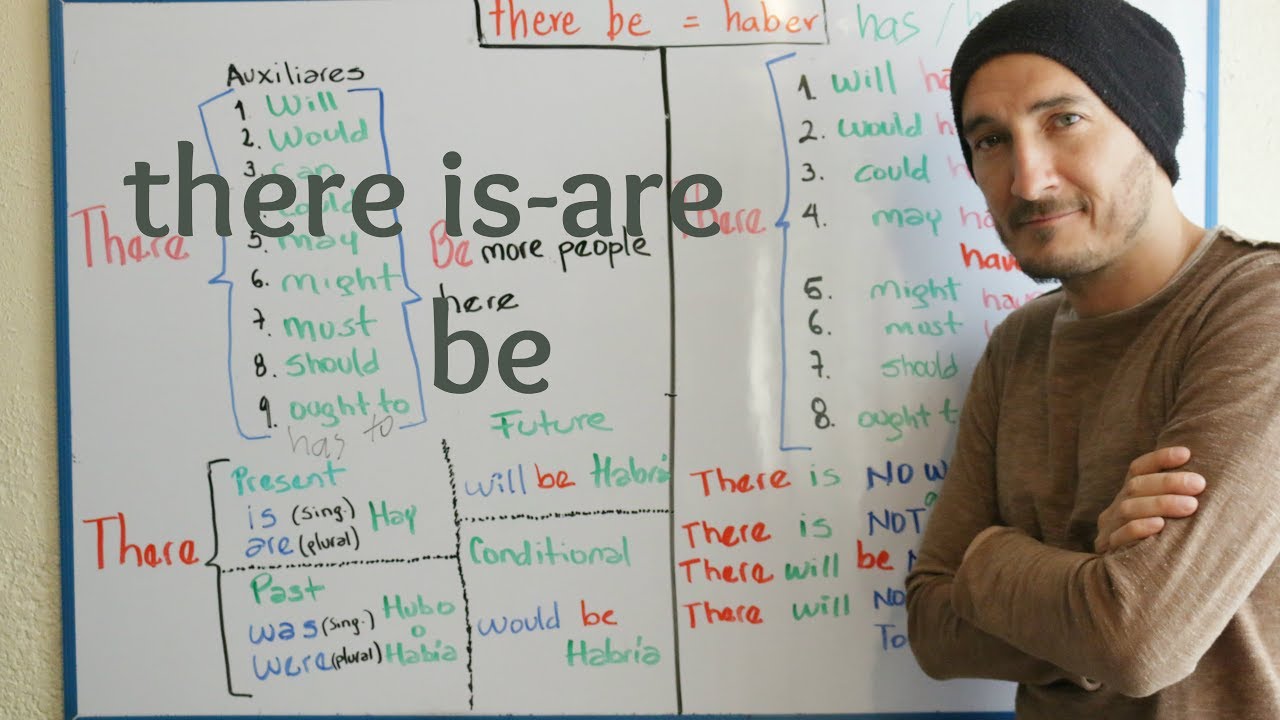 there be = haber
has / h
Auxiliares
1. Will
2. Would
3. can
could
5. may
6. might
7. must
8. should
9. ought to
has to
There
Be more people
here
there is-are
be
There
1 will ha
2. would h
3. could
4. may ha
hav
5. might hav
6. must
7. should
8. ought t
There
Present
is (sing.) Hay
are (plural)
Past
was (sing.) Hubo
o
were (plural) Había
Future
will be Habrá
Conditional
would be
Habría
There is NO
There is NOT
There will be
There will NO
To